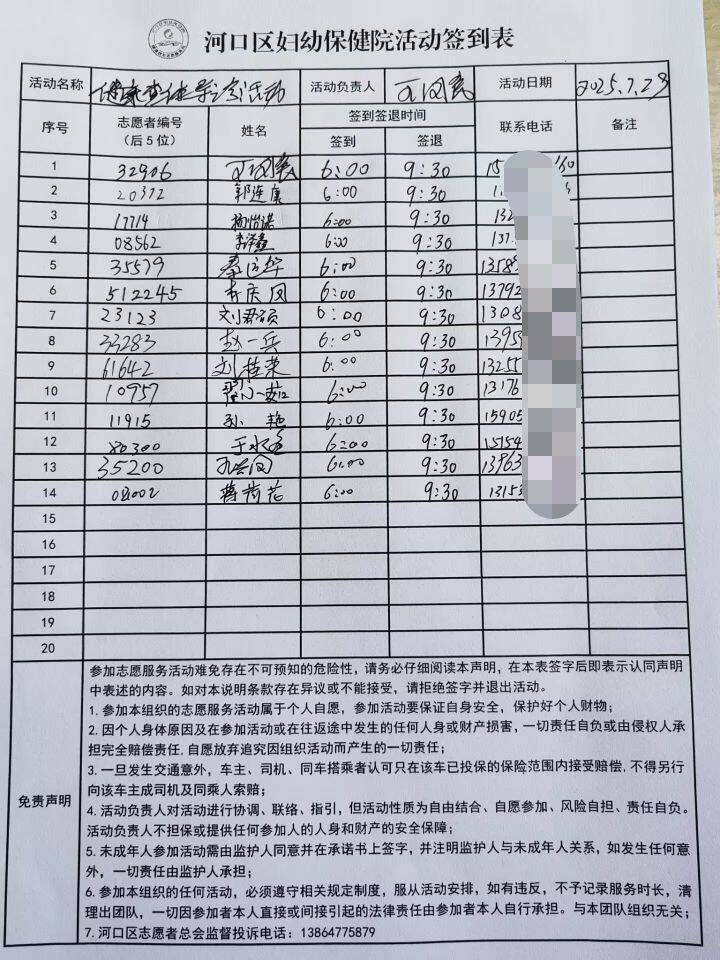 河口区妇幼保健院活动签到表
活动名称 健康查体导诊活动 活动负责人 活动日期 2025.7.23
序号 志愿者编号（后5位） 姓名 签到签退时间 联系电话 备注
签到 签退
1 32906 6:00 9:30 15
2 20372 郭连康 6:00 9:30
3 17714 杨怡诺 6:00 9:30 132
4 08562 6:00 9:30 137
5 35579 秦运华 6:00 9:30 13583
6 512245 李庆凤 6:00 9:30 13792
7 23123 刘君硕 6:00 9:30 1308
8 33283 赵一兵 6:00 9:30 13955
9 61642 刘桂荣 6:00 9:30 13255
10 10957 6:00 9:30 13176
11 11915 孙艳 6:00 9:30 15905
12 80300 6:00 9:30 15154
13 35200 6:00 9:30 13963
14 02002 蒋荷花 6:00 9:30 13153
15
16
17
18
19
20
免责声明
参加志愿服务活动难免存在不可预知的危险性，请务必仔细阅读本声明，在本表签字后即表示认同声明
中表述的内容。如对本说明条款存在异议或不能接受，请拒绝签字并退出活动。
1. 参加本组织的志愿服务活动属于个人自愿，参加活动要保证自身安全，保护好个人财物；
2. 因个人身体原因及在参加活动或在往返途中发生的任何人身或财产损害，一切责任自负或由侵权人承
担完全赔偿责任，自愿放弃追究因组织活动而产生的一切责任；
3. 一旦发生交通意外，车主、司机、同车搭乘者认可只在该车已投保的保险范围内接受赔偿，不得另行
向该车主或司机及同乘人索赔；
4. 活动负责人对活动进行协调、联络、指引，但活动性质为自由结合、自愿参加、风险自担、责任自负。
活动负责人不担保或提供任何参加人的人身和财产的安全保障；
5. 未成年人参加活动需由监护人同意并在承诺书上签字，并注明监护人与未成年人关系，如发生任何意
外，一切责任由监护人承担；
6. 参加本组织的任何活动，必须遵守相关规定制度，服从活动安排，如有违反，不予记录服务时长，清
理出团队，一切因参加者本人直接或间接引起的法律责任由参加者本人自行承担。与本团队组织无关；
7. 河口区志愿者总会监督投诉电话：13864775879